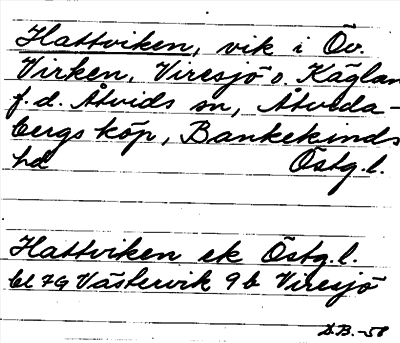 Hattviken, vik i Öv.
Virken, Viresjö o. Käglan
f.d. Åtvids sn, Åtvida-
bergs köp, Bankekinds
hd Östg.l.
Hattviken ek Östg.l.
bl 7G Västervik 9 b Viresjö
D.B.-58